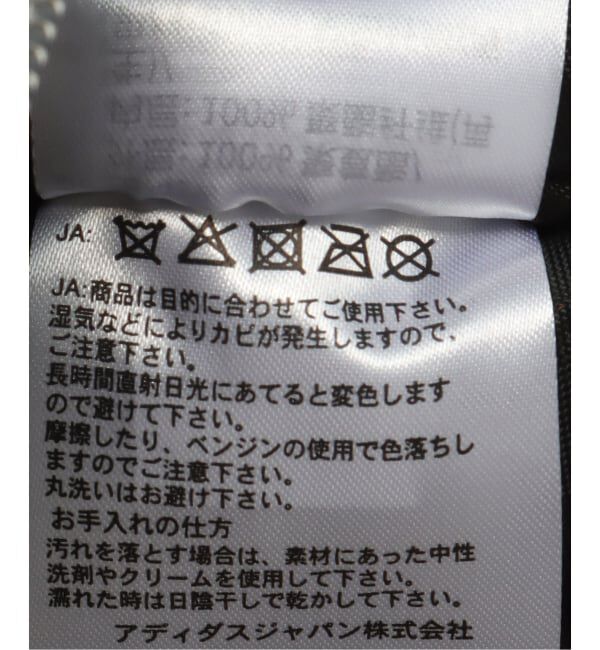 JA:
JA:商品は目的に合わせてご使用下さい。
湿気などによりカビが発生しますので、
ご注意下さい。
長時間直射日光にあてると変色します
ので避けて下さい。
摩擦したり、ベンジンの使用で色落ちし
ますのでご注意下さい。
丸洗いはお避け下さい。
お手入れの仕方
汚れを落とす場合は、素材にあった中性
洗剤やクリームを使用して下さい。
濡れた時は日陰干しで乾かして下さい。
アディダスジャパン株式会社